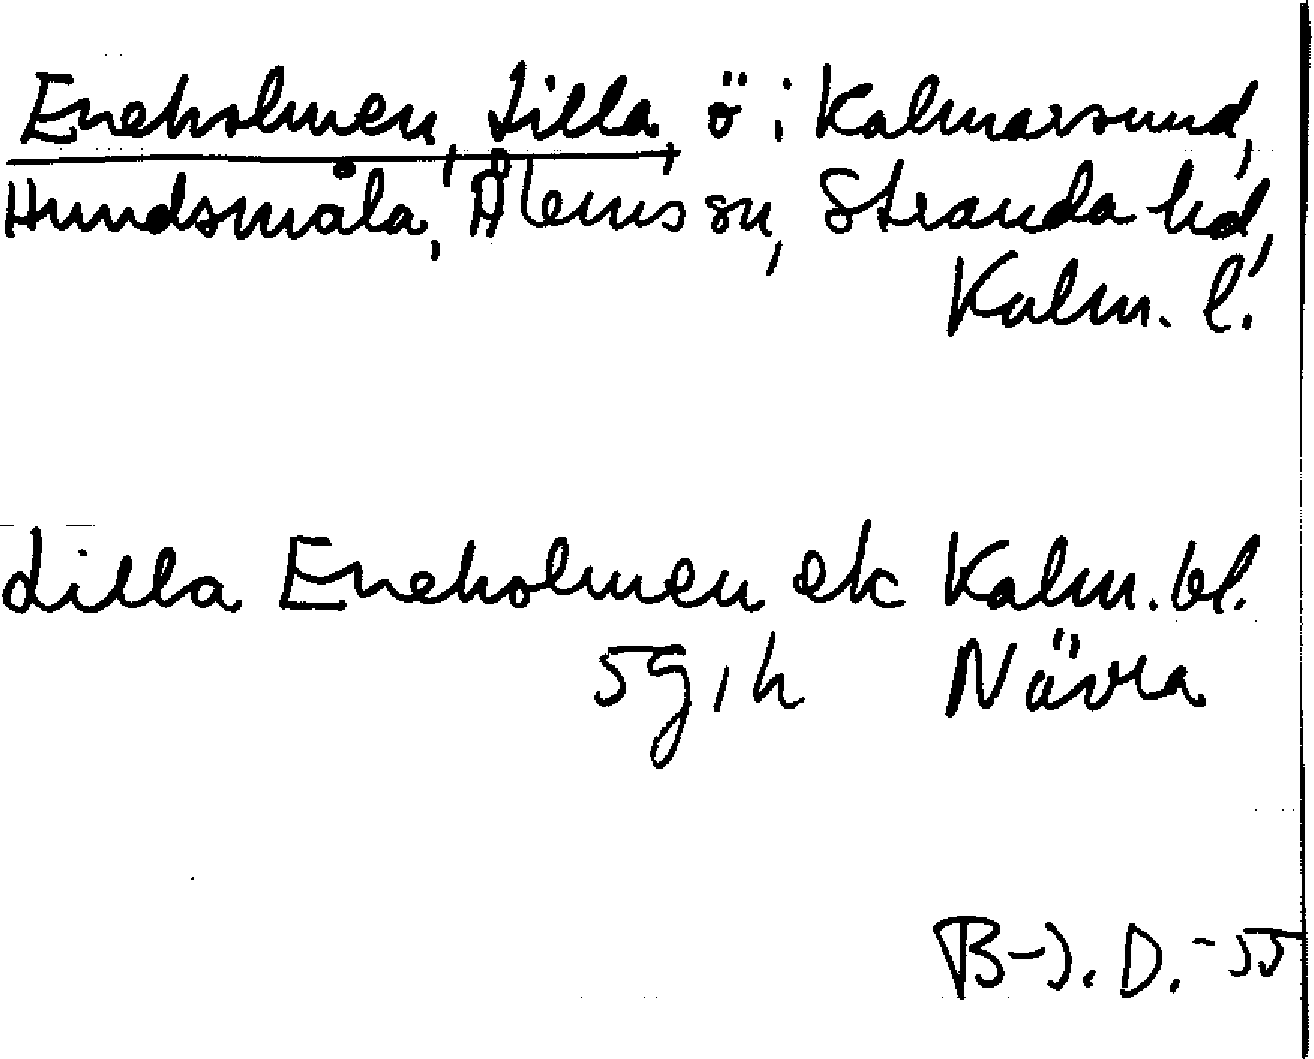 Eneholmen, Lilla, ö i Kalmarsund,
Hundsmåla, Ålems sn, Stranda hd,
Kalm. l.
Lilla Eneholmen ek Kalm. bl.
5g1h Nävra
B-J. D. -55